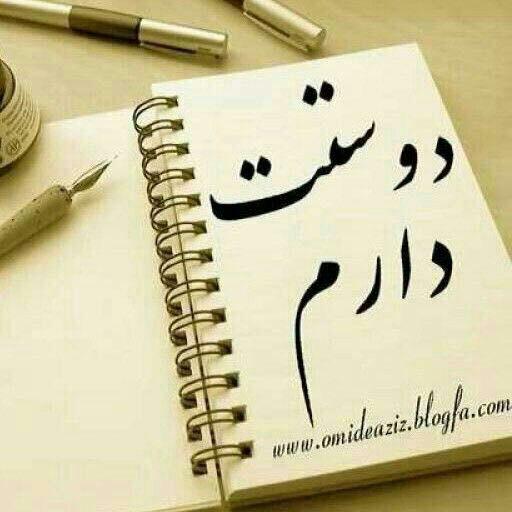 دوستت
دارم
www.omideaziz.blogfa.com